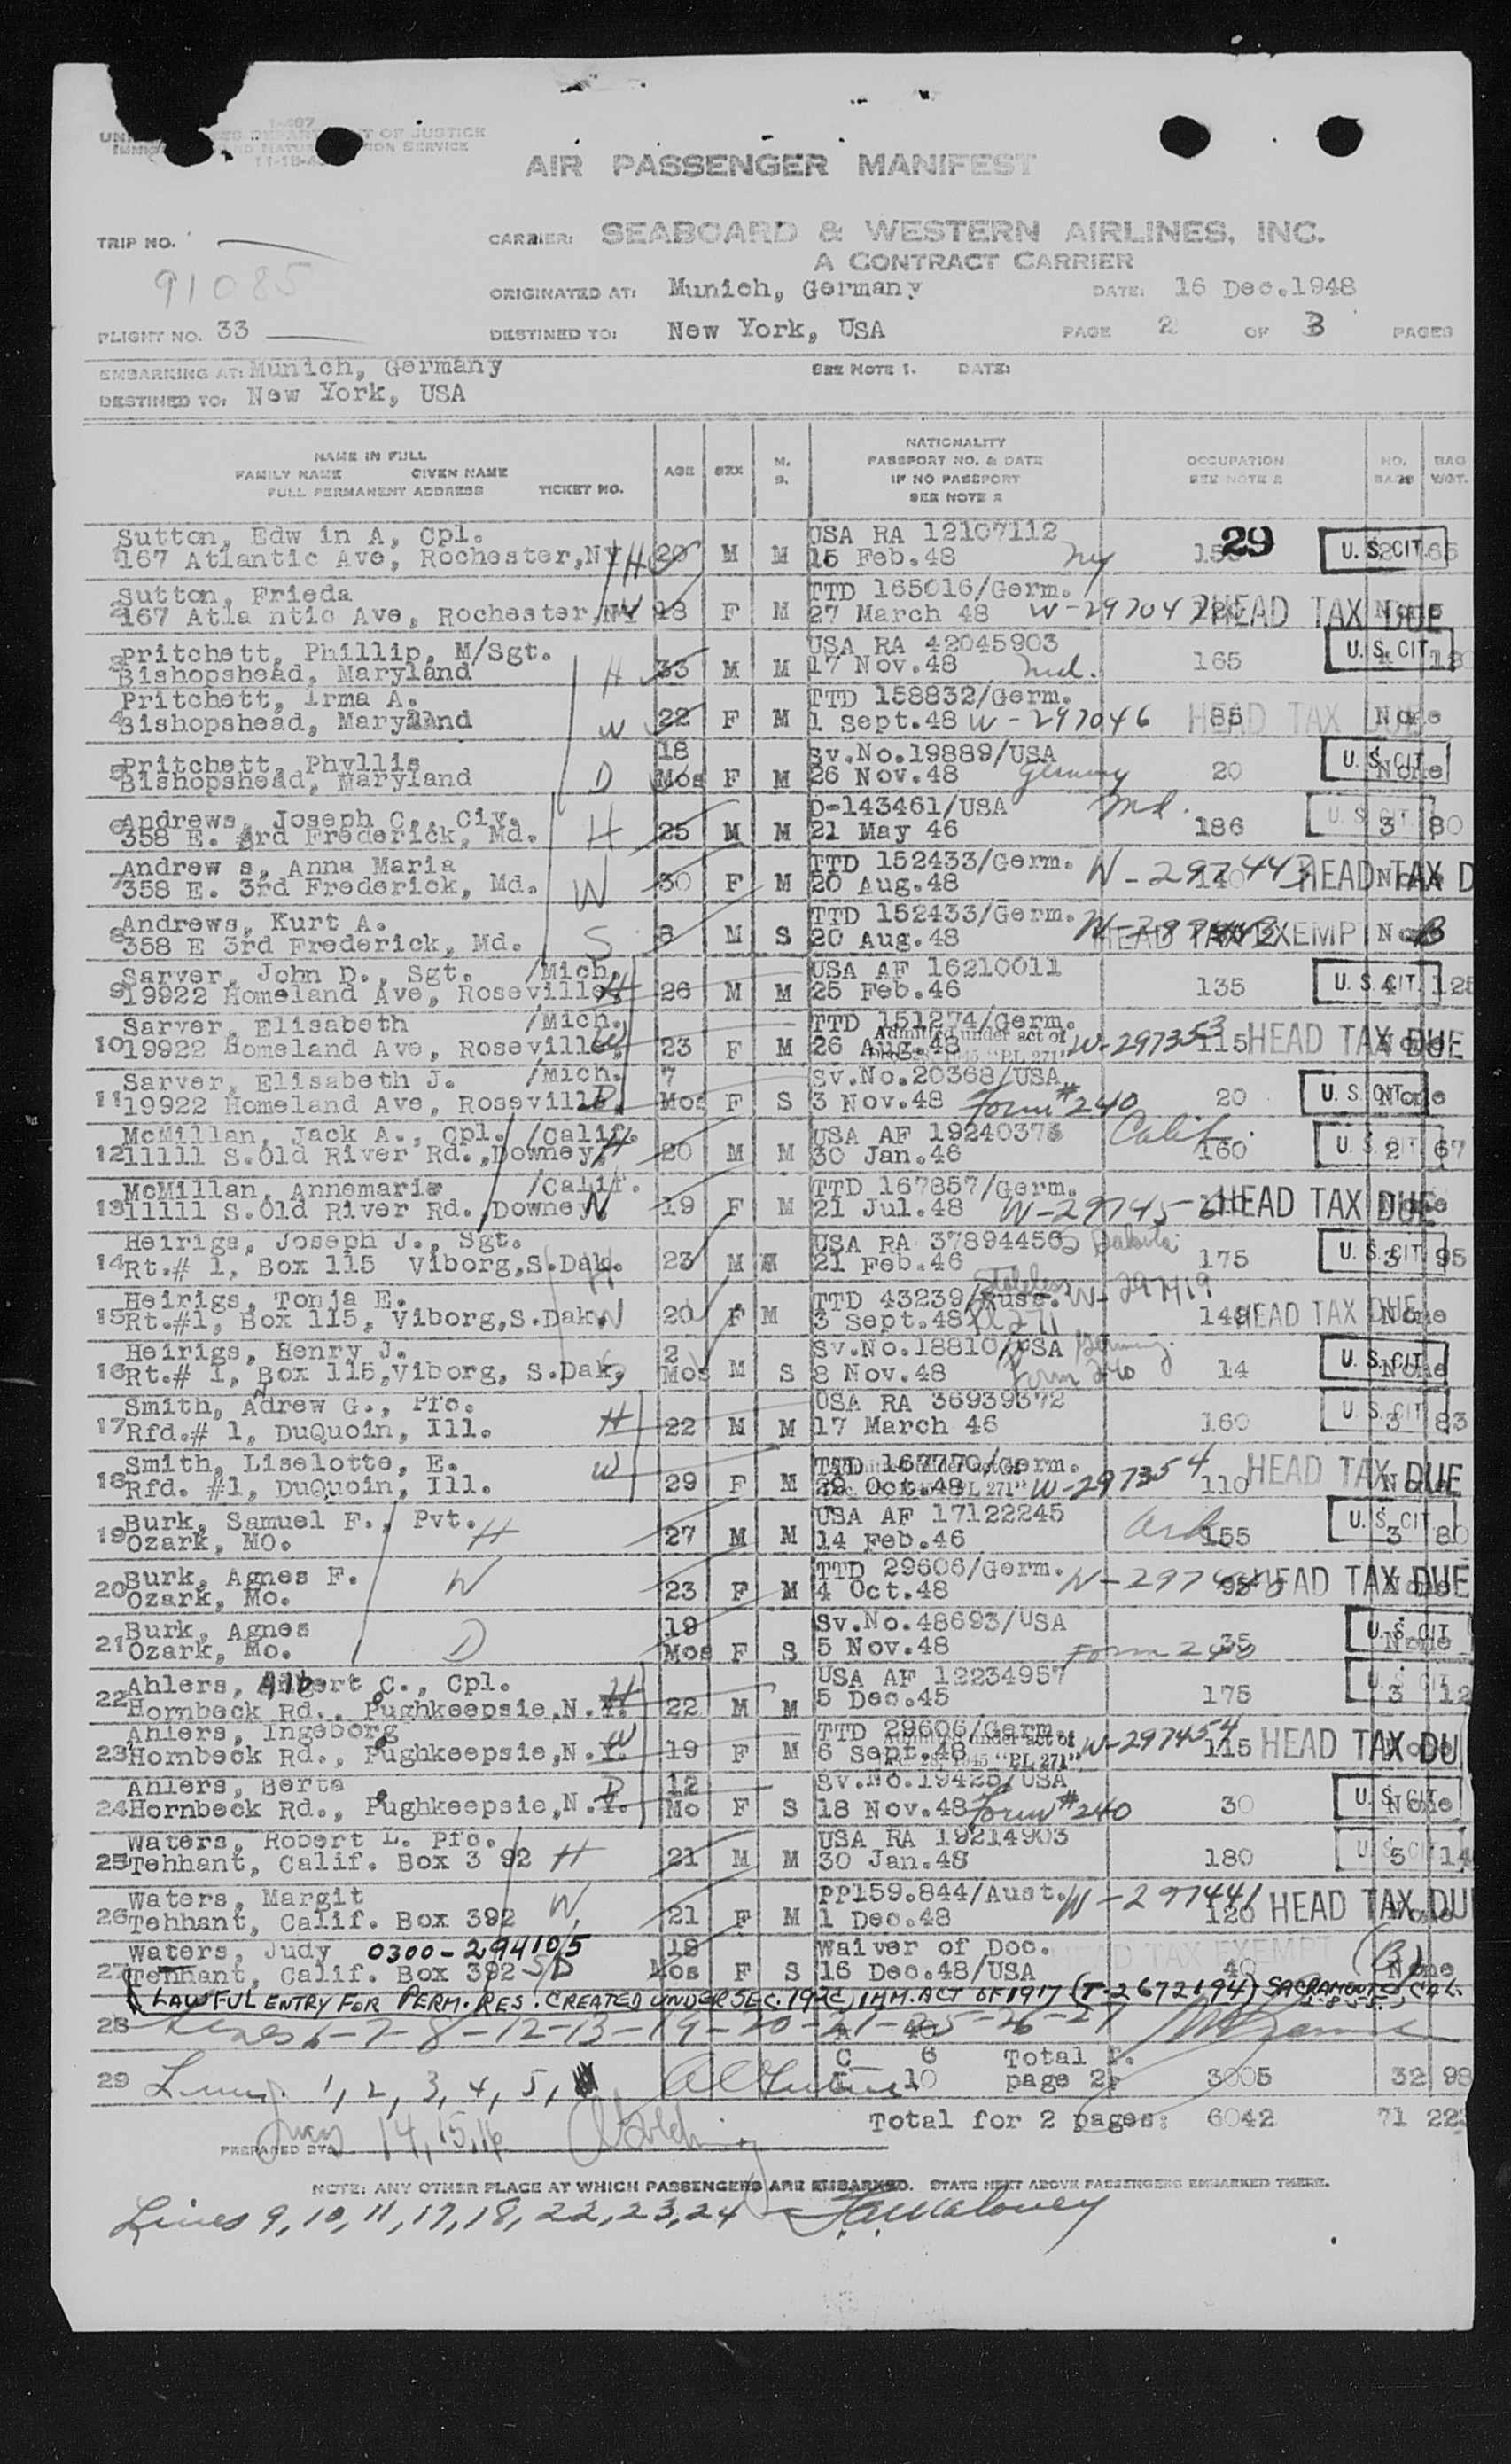 I-467
DEPARTMENT OF JUSTICE
AND NATURALIZATION SERVICE
AIR PASSENGER MANIFEST
TRIP NO.
CARRIER: SEABOARD & WESTERN AIRLINES, INC.
A CONTRACT CARRIER
91085
ORIGINATED AT: Munich, Germany DATE: 16 Dec.1948
FLIGHT NO. 33 DESTINED TO: New York, USA PAGE 2 OF 3 PAGES
EMBARKING AT: Munich, Germany SEE NOTE 1. DATE:
DESTINED TO: New York, USA
NAME IN FULL
FAMILY NAME GIVEN NAME
FULL PERMANENT ADDRESS TICKET NO.
AGE SEX M. S.
NATIONALITY
PASSPORT NO. & DATE
IF NO PASSPORT
SEE NOTE 2
OCCUPATION
SEE NOTE 2
NO. BAGS
BAG WGT.
Sutton, Edw in A, Cpl. USA RA 12107112 29 U. S. CIT.
167 Atlantic Ave, Rochester,NY H 20 M M 15 Feb.48 NY
Sutton, Frieda TTD 165016/Germ.
2 167 Atla ntic Ave, Rochester,NY W 18 F M 27 March 48 W-29704 HEAD TAX DUE None
Pritchett, Phillip, M/Sgt. USA RA 42045903 U. S. CIT.
3 Bishopshead, Maryland H 33 M M 17 Nov.48 Md. 165
Pritchett, Irma A. TTD 158832/Germ.
4 Bishopshead, Maryland W 22 F M 1 Sept.48 W-297046 85 HEAD TAX DUE None
Pritchett, Phyllis 18 Sv.No.19889/USA U. S. CIT.
5 Bishopshead, Maryland D Mos F M 26 Nov.48 Germany 20 None
Andrews, Joseph C., Civ. D-143461/USA Md. U. S. CIT.
6 358 E. 3rd Frederick, Md. H 25 M M 21 May 46 186 3 80
Andrew s, Anna Maria TTD 152433/Germ.
7 358 E. 3rd Frederick, Md. W 30 F M 20 Aug.48 W-297443 140 HEAD TAX D
Andrews, Kurt A. TTD 152433/Germ.
8 358 E 3rd Frederick, Md. S 8 M S 20 Aug.48 HEAD TAX EXEMP None B
Sarver, John D., Sgt. /Mich. USA AF 16210011
9 19922 Homeland Ave, Roseville, H 26 M M 25 Feb.46 135 U. S. CIT. 4 125
Sarver, Elisabeth /Mich. TTD 151274/Germ.
10 19922 Homeland Ave, Roseville, W 23 F M 26 Aug.48 Admitted under act of 1945 "PL 271" W-297353 115 HEAD TAX DUE
Sarver, Elisabeth J. /Mich. 7 Sv.No.20368/USA
11 19922 Homeland Ave, Roseville, D Mos F S 3 Nov.48 Form # 240 20 U. S. CIT. None
McMillan, Jack A., Cpl. /Calif. USA AF 19240375 Calif.
12 11111 S.Old River Rd.,Downey, H 20 M M 30 Jan.46 160 U. S. CIT. 2 67
McMillan, Annemarie /Calif. TTD 167857/Germ.
13 11111 S.Old River Rd.,Downey, W 19 F M 21 Jul.48 W-29745 HEAD TAX DUE
Heirigs, Joseph J., Sgt. USA RA 37894456 S Dakota
14 Rt.# 1, Box 115 Viborg,S.Dak. H 23 M M 21 Feb.46 175 U. S. CIT. 3 95
Heirigs, Tonja E. TTD 43239/Russ. Stateless W-297419
15 Rt.#1, Box 115, Viborg,S.Dak. W 20 F M 3 Sept.48 PL 271 HEAD TAX DUE None
Heirigs, Henry J. 2 Sv.No.18810/USA Germany
16 Rt.# 1, Box 115,Viborg, S.Dak, S Mos M S 8 Nov.48 Form 240 14 U. S. CIT. None
Smith, Adrew G., Pfc. USA RA 36939372
17 Rfd.# 1, DuQuoin, Ill. H 22 M M 17 March 46 160 U. S. CIT 3 83
Smith, Liselotte, E. TTD 167770/Germ.
18 Rfd. #1, DuQuoin, Ill. W 29 F M 29 Oct.48 PL 271" W-297354 110 HEAD TAX DUE
Burk, Samuel F., Pvt. USA AF 17122245
19 Ozark, Mo. H 27 M M 14 Feb.46 Ark 155 U. S. CIT 3 80
Burk, Agnes F. TTD 29606/Germ.
20 Ozark, Mo. W 23 F M 4 Oct.48 HEAD TAX DUE
Burk, Agnes 19 Sv.No.48693/USA U. S. CIT
21 Ozark, Mo. D Mos F S 5 Nov.48 Form 240 35 None
Ahlers, Albert C., Cpl. USA AF 12234957
22 Hornbeck Rd., Pughkeepsie,N.Y. H 22 M M 5 Dec.45 175 U. S. CIT 3 12
Ahlers, Ingeborg TTD 29606/Germ.
23 Hornbeck Rd., Pughkeepsie,N.Y. W 19 F M 6 Sept.48 Admitted under act of 1945 "PL 271" W-297454 115 HEAD TAX DU
Ahlers, Berta 12 Sv.No.19425/USA
24 Hornbeck Rd., Pughkeepsie,N.Y. D Mo F S 18 Nov.48 Form # 240 30 U. S. CIT. None
Waters, Robert L. Pfc. USA RA 19214903
25 Tehhant, Calif. Box 3 92 H 21 M M 30 Jan.48 180 U. S. CIT 5 14
Waters, Margit PP159.844/Aust.
26 Tehhant, Calif. Box 392 W 21 F M 1 Dec.48 W-297441 120 HEAD TAX DU
Waters, Judy 0300-294105 18 Waiver of Doc. HEAD TAX EXEMPT (B)
27 Tennant, Calif. Box 392 S/D Mos F S 16 Dec.48/USA 40 None
(LAWFUL ENTRY FOR PERM. RES. CREATED UNDER SEC. 192C, IMM. ACT OF 1917 (T-2672194) SACRAMENTO, CAL.
28 Lines 6-7-8-12-13-19-20-21-25-26-27
C 6 Total f.
29 Lines 1, 2, 3, 4, 5, 10 page 2: 3005 32 98
Total for 2 pages: 6042 71 223
Lines 14, 15, 16
PREPARED BY:
NOTE: ANY OTHER PLACE AT WHICH PASSENGERS ARE EMBARKED. STATE NEXT ABOVE PASSENGERS EMBARKED THERE.
Lines 9, 10, 11, 17, 18, 22, 23, 24 - Maloney